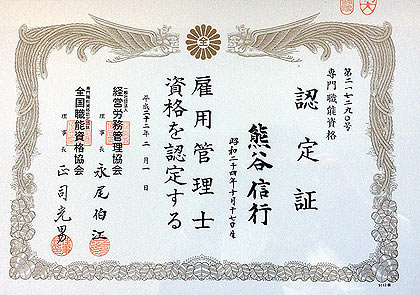 第二一七二九〇号
専門職能資格
認定証
熊谷信行
昭和二十四年十月十七日生
雇用管理士
資格を認定する
平成二十二年二月一日
経営労務管理協会
理事長 永尾伯江
全国職能資格協会
理事長 正司光男